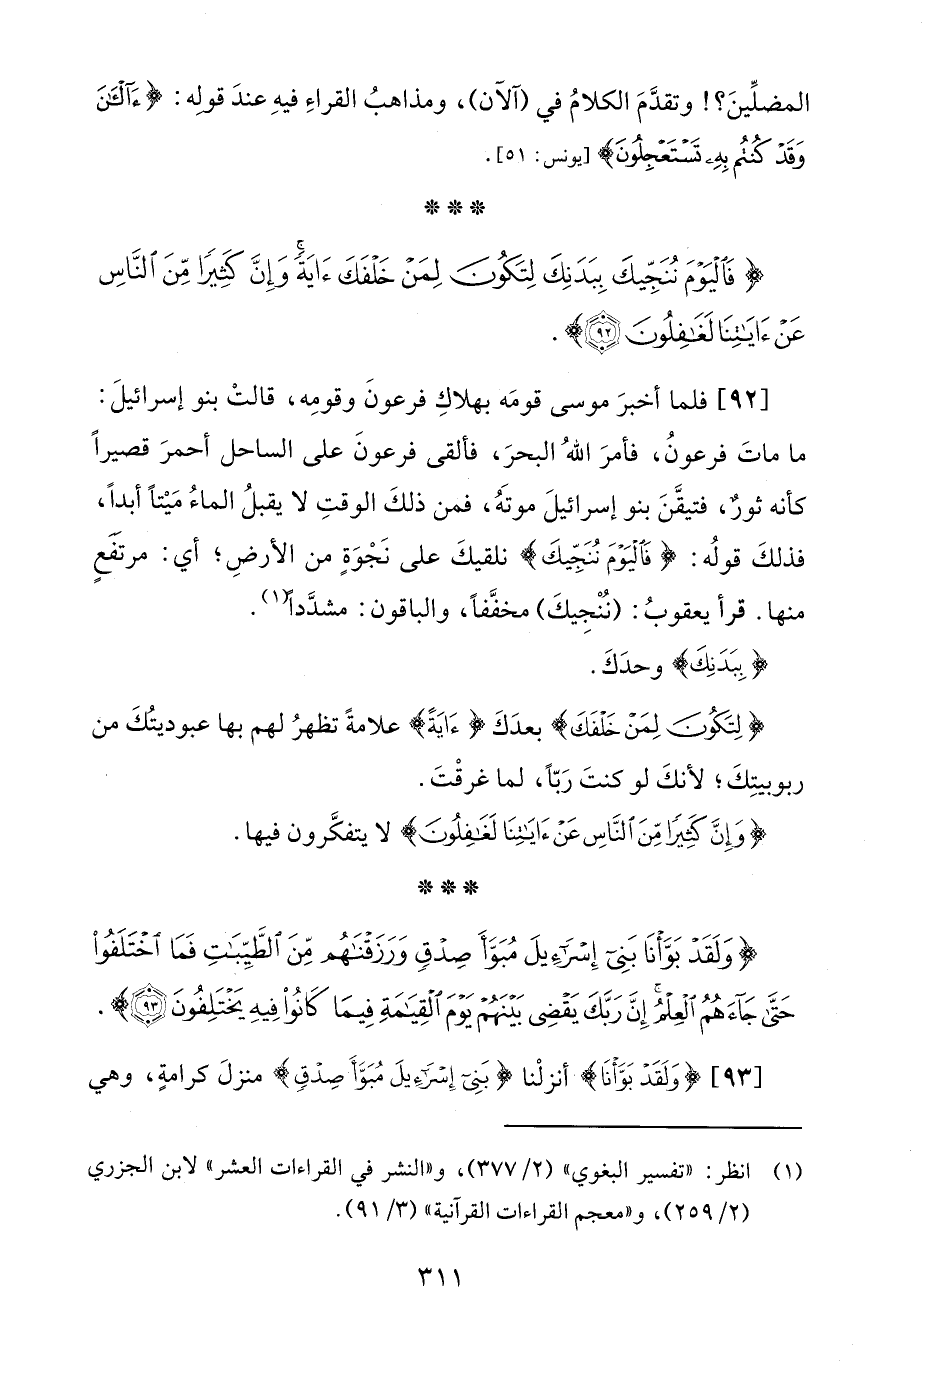 المضلِّينَ؟! وتقدَّمَ الكلامُ في (آلآن)، ومذاهبُ القراءِ فيهِ عندَ قولِه: ﴿ءَآلۡـَٰٔنَ
وَقَدۡ كُنتُم بِهِۦ تَسۡتَعۡجِلُونَ﴾ [يونس: ٥١].
* * *
﴿فَٱلۡيَوۡمَ نُنَجِّيكَ بِبَدَنِكَ لِتَكُونَ لِمَنۡ خَلۡفَكَ ءَايَةٗۚ وَإِنَّ كَثِيرٗا مِّنَ ٱلنَّاسِ
عَنۡ ءَايَٰتِنَا لَغَٰفِلُونَ ٩٢﴾.
[٩٢] فلما أخبرَ موسى قومَه بهلاكِ فرعونَ وقومِه، قالتْ بنو إسرائيلَ:
ما ماتَ فرعونُ، فأمرَ اللهُ البحرَ، فألقى فرعونَ على الساحل أحمرَ قصيراً
كأنه ثورٌ، فتيقَّنَ بنو إسرائيلَ موتَهُ، فمن ذلكَ الوقتِ لا يقبلُ الماءُ مَيْتاً أبداً،
فذلكَ قولُه: ﴿فَٱلۡيَوۡمَ نُنَجِّيكَ﴾ نلقيكَ على نَجْوَةٍ من الأرضِ؛ أي: مرتفَعٍ
منها. قرأ يعقوبُ: (نُنْجِيكَ) مخفَّفاً، والباقون: مشدَّداً(١).
﴿بِبَدَنِكَ﴾ وحدَكَ.
﴿لِتَكُونَ لِمَنۡ خَلۡفَكَ﴾ بعدَكَ ﴿ءَايَةٗ﴾ علامةً تظهرُ لهم بها عبوديتُكَ من
ربوبيتِكَ؛ لأنكَ لو كنتَ رَبّاً، لما غرقْتَ.
﴿وَإِنَّ كَثِيرٗا مِّنَ ٱلنَّاسِ عَنۡ ءَايَٰتِنَا لَغَٰفِلُونَ﴾ لا يتفكَّرون فيها.
* * *
﴿وَلَقَدۡ بَوَّأۡنَا بَنِيٓ إِسۡرَٰٓءِيلَ مُبَوَّأَ صِدۡقٖ وَرَزَقۡنَٰهُم مِّنَ ٱلطَّيِّبَٰتِ فَمَا ٱخۡتَلَفُواْ
حَتَّىٰ جَآءَهُمُ ٱلۡعِلۡمُۚ إِنَّ رَبَّكَ يَقۡضِي بَيۡنَهُمۡ يَوۡمَ ٱلۡقِيَٰمَةِ فِيمَا كَانُواْ فِيهِ يَخۡتَلِفُونَ ٩٣﴾.
[٩٣] ﴿وَلَقَدۡ بَوَّأۡنَا﴾ أنزلْنا ﴿بَنِيٓ إِسۡرَٰٓءِيلَ مُبَوَّأَ صِدۡقٖ﴾ منزلَ كرامةٍ، وهي
(١) انظر: «تفسير البغوي» (٢/ ٣٧٧)، و«النشر في القراءات العشر» لابن الجزري
(٢/ ٢٥٩)، و«معجم القراءات القرآنية» (٣/ ٩١).
٣١١